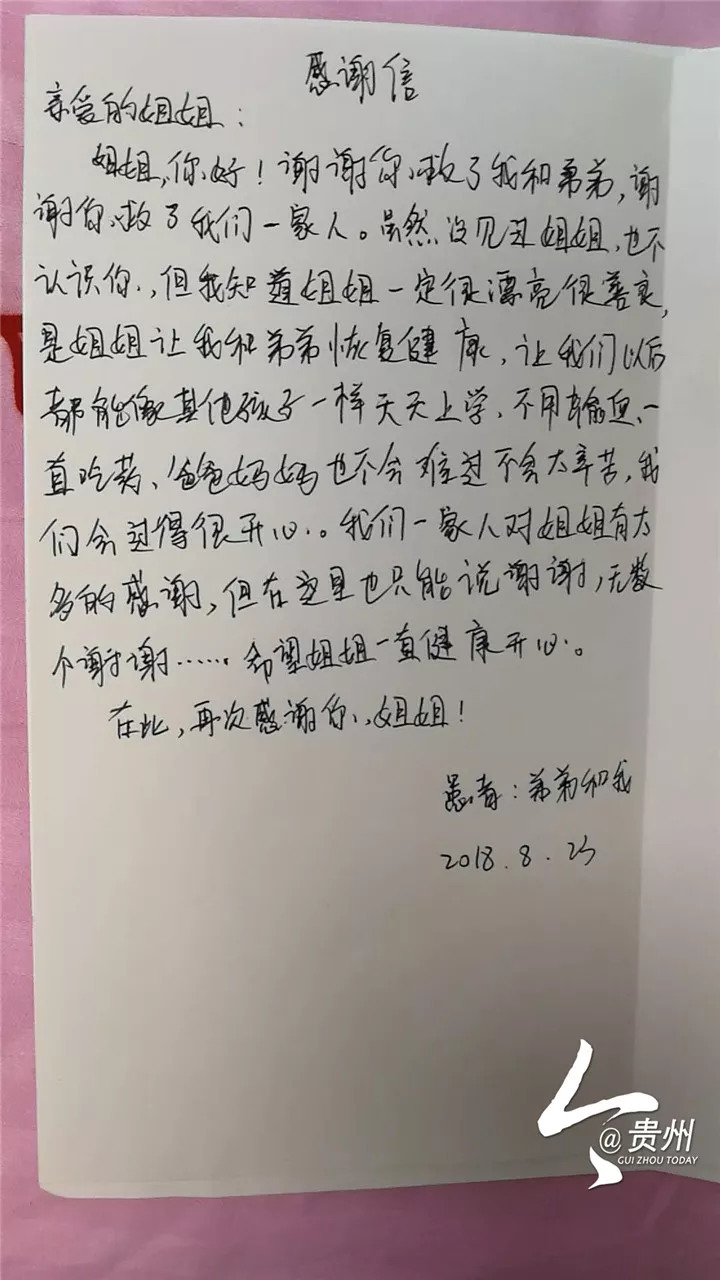 感谢信
亲爱的姐姐：
姐姐，你好！谢谢你救了我和弟弟，谢
谢你救了我们一家人。虽然没见过姐姐，也不
认识你，但我知道姐姐一定很漂亮很善良，
是姐姐让我和弟弟恢复健康，让我们以后
都能像其他孩子一样天天上学，不用输血、一
直吃药、爸爸妈妈也不会难过不会太辛苦，我
们会过得很开心。我们一家人对姐姐有太
多的感谢，但在这里也只能说谢谢，无数
个谢谢……希望姐姐一直健康开心。
在此，再次感谢你，姐姐！
患者：弟弟和我
2018.8.23
@贵州
GUI ZHOU TODAY